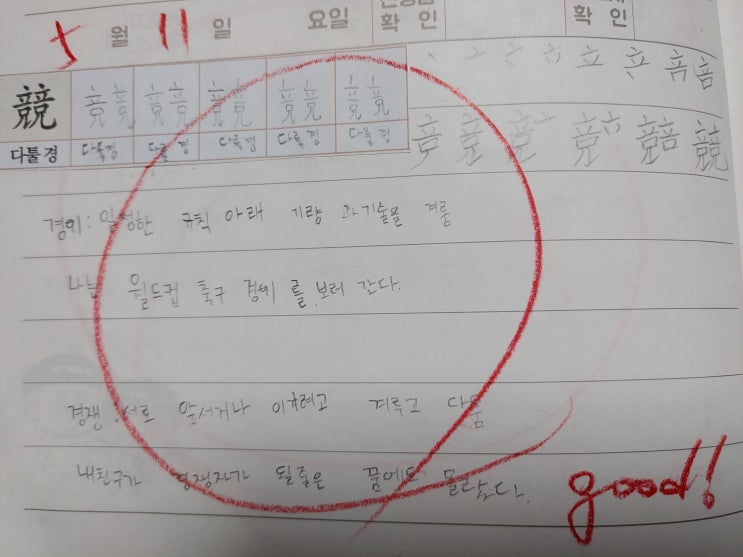 5월 11일 요일 확인 확인
競 競 競 競 競 競
다툴경 다툴경 다툴경 다툴경 다툴경 다툴경
경기: 일정한 규칙 아래 기량 과 기술을 겨룸
나는 월드컵 축구 경기 를 보러 간다.
경쟁: 서로 앞서거나 이기려고 겨루고 다툼
내친구가 경쟁자가 될줄은 꿈에도 몰랐다.
good!